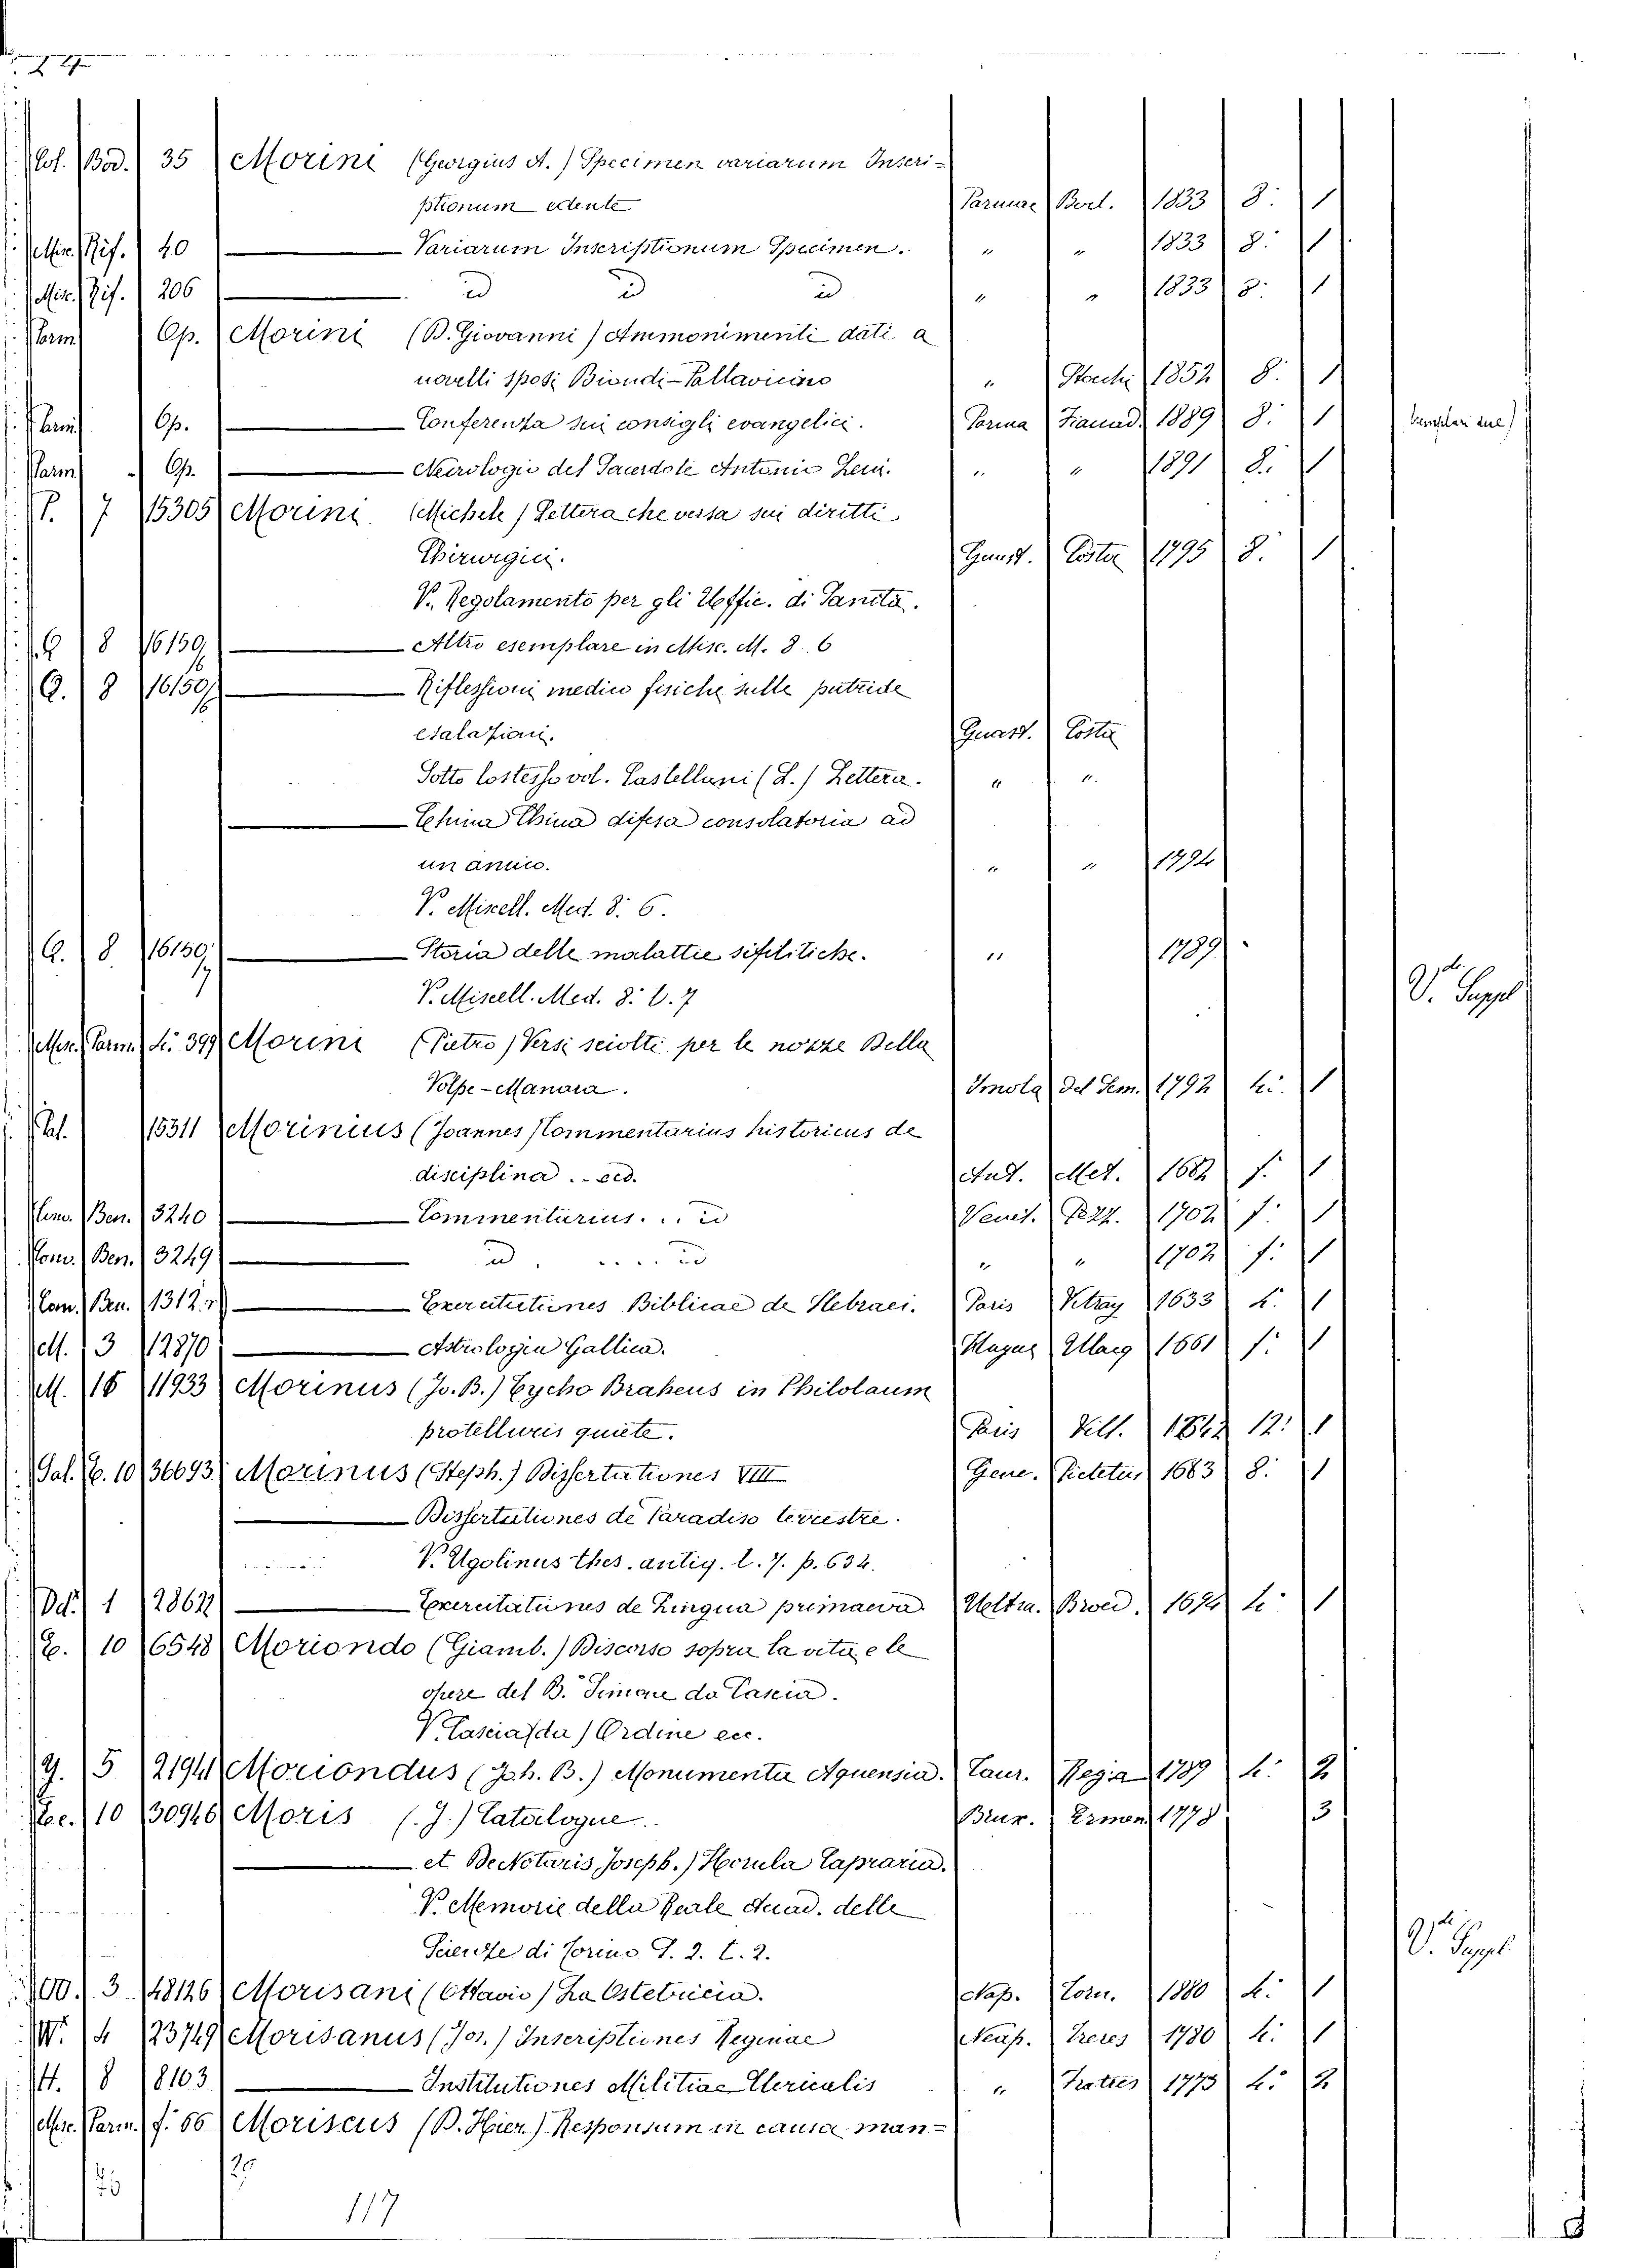 Col. Bod. 35 Morini (Georgius A.) Specimen variarum Inscri-
ptionum edente Parmae Bod. 1833 8. 1
Misc. Rif. 40 Variarum Inscriptionum Specimen. " " 1833 8. 1
Misc. Rif. 206 id id id " " 1833 8. 1
Parm Op. Morini (D. Giovanni) Ammonimenti dati a
novelli sposi Biondi-Pallavicino " 1852 8. 1
Parm Op. Conferenza sui consigli evangelici. Parma Fiaccad. 1889 8. 1
Parm Op. Necrologio del Sacerdote Antonio " " 1891 8. 1
P. 7 15305 Morini (Michele) Lettera che versa sui diritti
Chirurgici. Guast. Costa 1795 8. 1
V. Regolamento per gli Uffic. di Sanità.
Q 8 16159/6 Altro esemplare in Misc. M. 8. 6
Q. 8 16159/6 Riflessioni medico fisiche sulle putride
esalazioni. Guast. Costa
Sotto lostesso vol. Castellani (L.) Lettera. " "
China China difesa consolatoria ad
un amico. " " 1794
V. Miscell. Med. 8. 6.
Q. 8 16159/7 Storia delle malattie sifilitiche. " 1789
V. Miscell. Med. 8. t. 7
V. Suppl
Misc. Parm. 4. 399 Morini (Pietro) Versi sciolti per le nozze Della
Volpe-Manara. Imola del Sem. 1792 4. 1
Pal. 15311 Morinius (Joannes) Commentarius historicus de
disciplina . . ecc. Ant. Met. 1682 f. 1
Com. Ben. 3240 Commentarius. . . id Venet. Pezz. 1702 f. 1
Com. Ben. 3249 id . . . . . id " " 1702 f. 1
Com. Ben. 1312 Exercitationes Biblicae de Hebraei. Paris Vitray 1633 4. 1
M. 3 12870 Astrologia Gallica. Hagae Ulacq 1661 f. 1
M. 16 11933 Morinus (Jo. B.) Tycho Braheus in Philolaum
pro telluris quiete. Paris 1642 12. 1
Gal. C. 10 36693 Morinus (Steph.) Dissertationes VIII Gene. Pictetus 1683 8. 1
Dissertationes de Paradiso terrestre.
V. Ugolinus thes. antiq. t. 7. p. 634.
Dd. 1 Exercitationes de Lingua primaeva Ultra. Broed. 1694 4. 1
C. 10 6548 Moriondo (Giamb.) Discorso sopra la vita e le
opere del B. Simone da Cascia.
V. Cascia (da) Ordine ecc.
G. 5 21941 Moriondus (Joh. B.) Monumenta Aquensia. Taur. Regia 1789 4. 2
10 30946 Moris (J.) Catalogue Brux. Ermen 1778 3
et DeNotaris Joseph.) Florula Capraria.
V. Memorie della Reale Accad. delle
Scienze di Torino S. 2. t. 2.
V. Suppl.
OO. 3 48126 Morisani (Ottavio) La Ostetricia. Nap. 1880 4. 1
W. 4 23749 Morisanus (Jos.) Inscriptiones Reginae Neap. 1780 4. 1
H. 8 8103 Institutiones Militiae Clericalis " Fratres 1773 4. 2
Misc. Parm. f. 66 Moriscus (D. Hier.) Responsum in causa man-
117